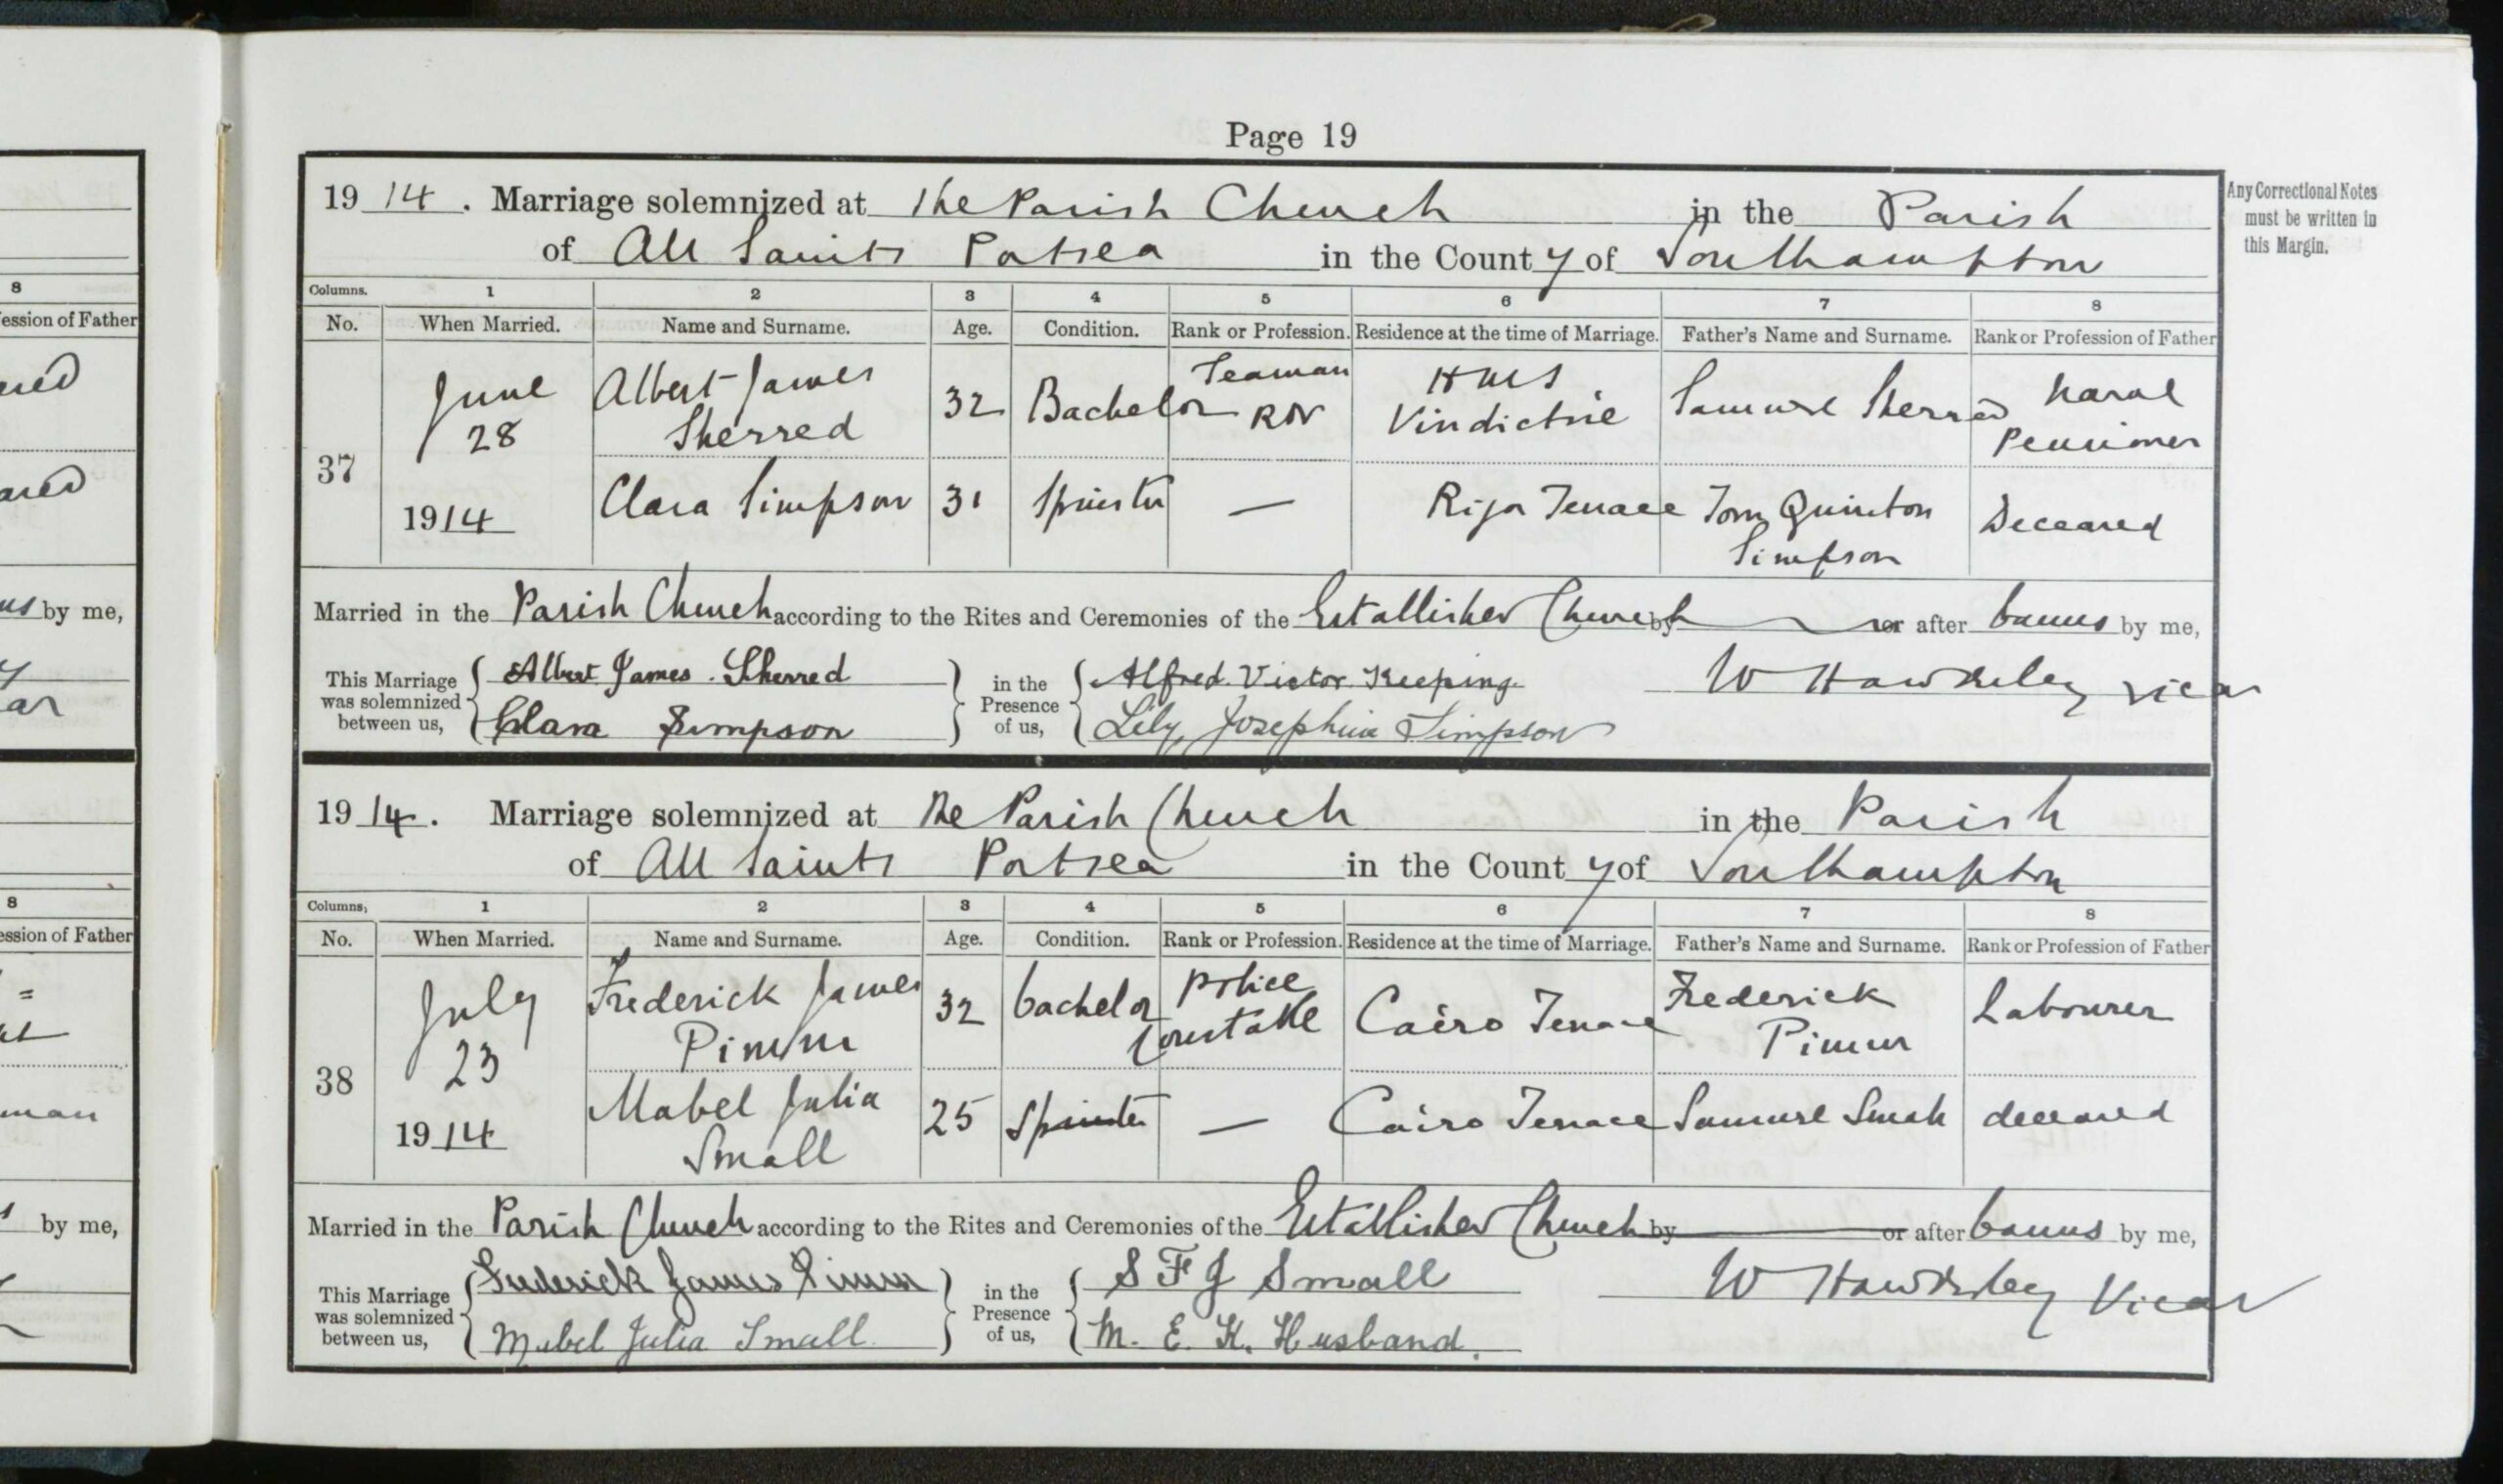 Page 19
Any Correctional Notes
must be written in
this Margin.
1914. Marriage solemnized at The Parish Church in the Parish
of All Saints Portsea in the County of Southampton
Columns. 1 2 3 4 5 6 7 8
No. When Married. Name and Surname. Age. Condition. Rank or Profession. Residence at the time of Marriage. Father's Name and Surname. Rank or Profession of Father
37
June
28
1914
Albert James
Sherred
32
Bachelor
Seaman
RN
HMS
Vindictive
Samuel Sherred
Naval
Pensioner
Clara Simpson
31
Spinster
—
Terrace
Tom Quinton
Simpson
Deceased
Married in the Parish Church according to the Rites and Ceremonies of the Established Church by or after banns by me,
This Marriage
was solemnized
between us,
Albert James Sherred
Clara Simpson
in the
Presence
of us,
Alfred Victor Keeping
Lily Josephine Simpson
W Hawksley Vicar
1914. Marriage solemnized at The Parish Church in the Parish
of All Saints Portsea in the County of Southampton
Columns, 1 2 3 4 5 6 7 8
No. When Married. Name and Surname. Age. Condition. Rank or Profession. Residence at the time of Marriage. Father's Name and Surname. Rank or Profession of Father
38
July
23
1914
Frederick James
Pimm
32
bachelor
Police
Constable
Cairo Terrace
Frederick
Pimm
Labourer
Mabel Julia
Small
25
Spinster
—
Cairo Terrace
Samuel Small
deceased
Married in the Parish Church according to the Rites and Ceremonies of the Established Church by or after banns by me,
This Marriage
was solemnized
between us,
Frederick James Pimm
Mabel Julia Small
in the
Presence
of us,
S F J Small
M. E. K. Husband.
W Hawksley Vicar
8
ession of Father
by me,
8
ession of Father
by me,